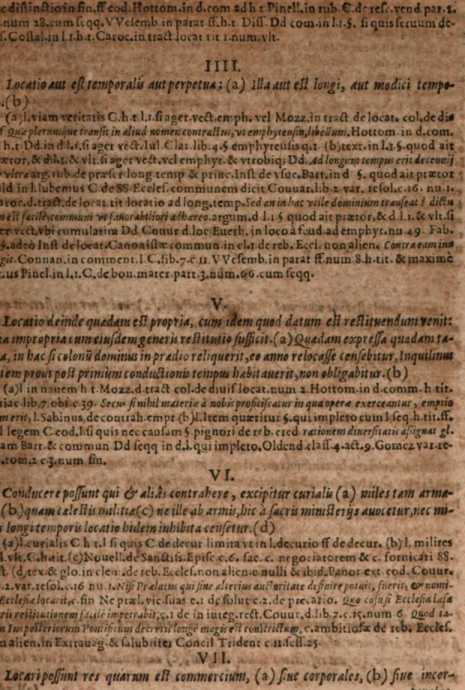 ec distinctio in fin. ff. cod. Hottom. in d. com ad h t Pinell. in rub. C. de resc. vend. par. 2.
num 28. cum seqq. VVesemb in parat ff. h.t. Diss Dd com. in l.1.
s, Costal. in l.1. h.t. Caroc. in tract locat tit 1. num. vlt.
IIII.
Locatio aut est temporalis aut perpetua; (a) illa aut est longi, aut modici tempo-
.(b)
(a) l. viam veritatis C. h t l.1. si ager vect. emph. vel Mozz. in tract de locat. col. de diu
Quæ plerunque transit in aliud nomen contractus, vt emphyteusin, libellum. Hottom in d. com.
h.t. Dd. in d.l.1. si ager vect. Iul Clar. lib. 4. § emphyteusis q.1. (b) text. in l.1. §. quod ait
ætor, & d. l.1. & vlt. si ager vect. vel emphyt. & vtrobiq; Dd. Ad longum tempus
arg. rub. de præscr long temp & princ. Inst de vsuc. Bart. in d §. quod ait prætor
ld in l. iubemus C de SS Eccles. communem dicit Couuar. lib 2 var. resol. c. 16. nu. 1.
aroc. d. tract. de locat. tit locatio ad long. temp. Sed an in hac velle dominium transeat? dictu
est facile commun vt sauorabiliori adhæreo. argum. d l 1 § quod ait prætor, & d l. 1. & vlt. si
er vect. vbi cumulatim Dd Couur d. loc Euerh. in loco à feud ad emphyt. nu. 49. Fab.
§. adeò Inst de locat. Canonistæ commun in c l. 1 de reb. Eccl. non alien. Contra eam ina
git. Connan. in comment. l.C. lib. 7. c 11. VVesemb. in parat ff. num 8. h. tit. & maximè
t. us Pinel. in l. 1 C. de bon. mater part. 3. num. 66. cum seqq.
V.
Locatio deinde quædam est propria, cum idem quod datum est restituendum venit:
a impropria cum eiusdem generis restitutio sufficit. (a) Quædam expressa quædam ta-
a, in hac si colonũ dominus in prædio reliquerit, eo anno relocasse censebitur, Inquilinus
tem prout post primum conductionis tempus habitauerit, non obligabitur. (b)
(a) l in nauem h t Mozz. d tract col. de diuis locat. num 2. Hottom. in d. comm. h tit.
riac lib. 7. obs. c 39. Secus si nihil materiæ à nobis proficiscatur in qua operæ exerceantur, emptio
m erit, l. Sabinus, de contrah. empt (b) l. Item quæritur §. qui impleto cum l seq. h. tit. ff.
l legem C eod. l si quis nec causam §. pignori de reb. cred rationem diuersitatis assignat gl.
am Bart & commun Dd seqq in d. §. qui impleto. Oldend class. 4. act. 9. Gomez var. re-
. tom. 2 c 3. num fin.
VI.
Conducere possunt qui & aliàs contrahere, excipitur curialis (a) miles tam arma-
(b) quàm cælestis militiæ (c) ne ille ab armis, hic à sacris ministerijs auocetur, nec mi-
longi temporis locatio bidem inhibita censetur. (d)
(a) l. curialis C h t l si quis C de decur limita vt in l. decurio ff de decur. (b) l. milites
l. vlt. C. h. tit. (c) Nouell. de Sanctiss. Episc c 6. sac. c. negotiatorem & c. fornicari 88.
st. (d) tex & glo. in clem. de reb. Eccles. non alien. e nulli & ibid. Panor. ext eod. Couur.
2. var. resol. c 16 nu 1. Nisi Prælatus qui sine alterius auctoritate desinere potuit, fuerit,
Ecclesia locarit, c. fin Ne præl. vic. suas c. 1 de solut c. 2. de precario. Quo casu si Ecclesia læsa
rit restitutionem facilè impetrabit, c. 1 de in integ. rest. Couur. d. lib. 2. c. 15. num 6. Quod ta-
In posteriorum Pontificum decretis longè magis est constrictum, c. ambitiosæ de reb. Eccles.
n alien. in Extrauag & salubriter Concil Trident c 11 sess. 25
VII.
Locari possunt res quarum est commercium, (a) siue corporales, (b) siue incor-